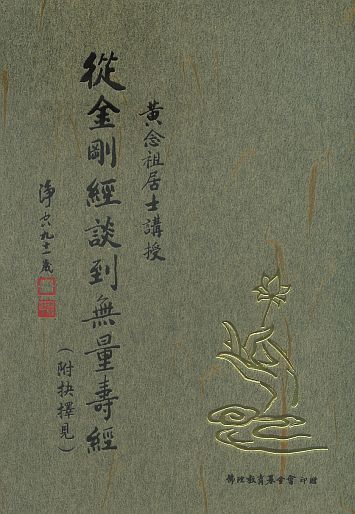 黃念祖居士講授
從金剛經談到無量壽經
（附抉擇見）
淨空九十一歲
佛陀教育基金會 印贈